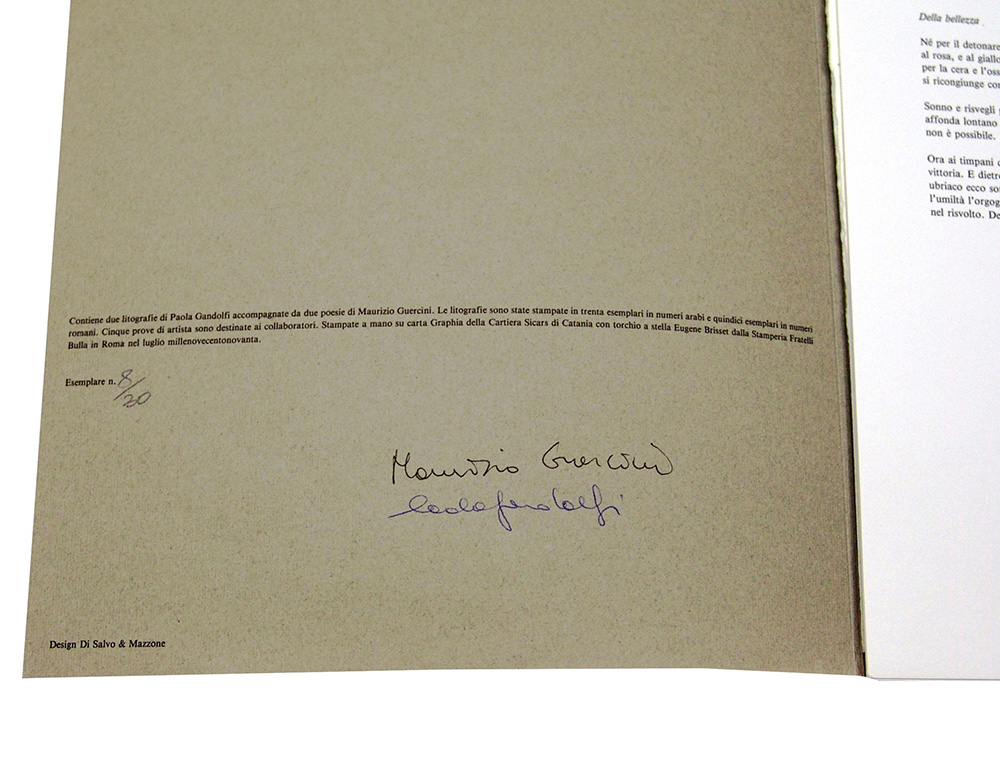 Contiene due litografie di Paola Gandolfi accompagnate da due poesie di Maurizio Guercini. Le litografie sono state stampate in trenta esemplari in numeri arabi e quindici esemplari in numeri
romani. Cinque prove di artista sono destinate ai collaboratori. Stampate a mano su carta Graphia della Cartiera Sicars di Catania con torchio a stella Eugene Brisset dalla Stamperia Fratelli
Bulla in Roma nel luglio millenovecentonovanta.
Esemplare n. 8/30
Maurizio Guercini
Paola Gandolfi
Design Di Salvo & Mazzone
Della bellezza
Né per il detonare
al rosa, e al giallo
per la cera e l'oss
si ricongiunge con
Sonno e risvegli
affonda lontano
non è possibile.
Ora ai timpani
vittoria. E dietro
ubriaco ecco so
l'umiltà l'orgog
nel risvolto. De